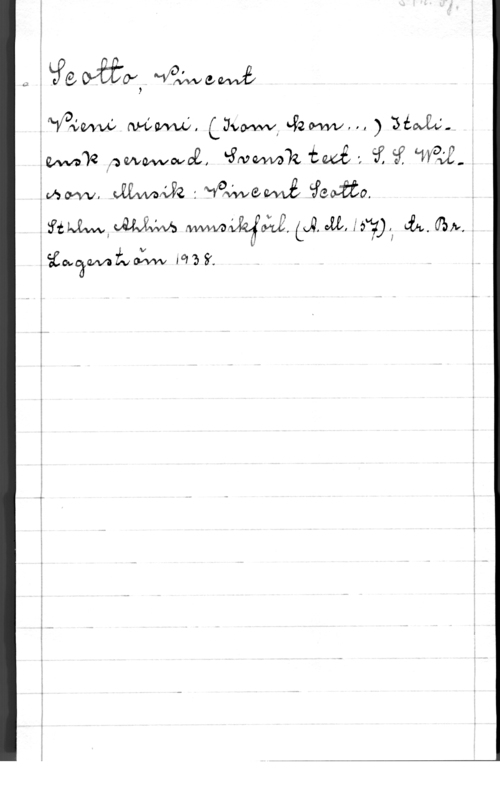 Scotto, Vincent
Vieni vieni. (Kom, kom...) Itali-
ensk serenad. Svensk text: S. S. Wil-
son. Musik: Vincent Scotto.
Sthlm, Ehlins musikförl. (A. M. 157); dr. Br.
Lagerström 1938.